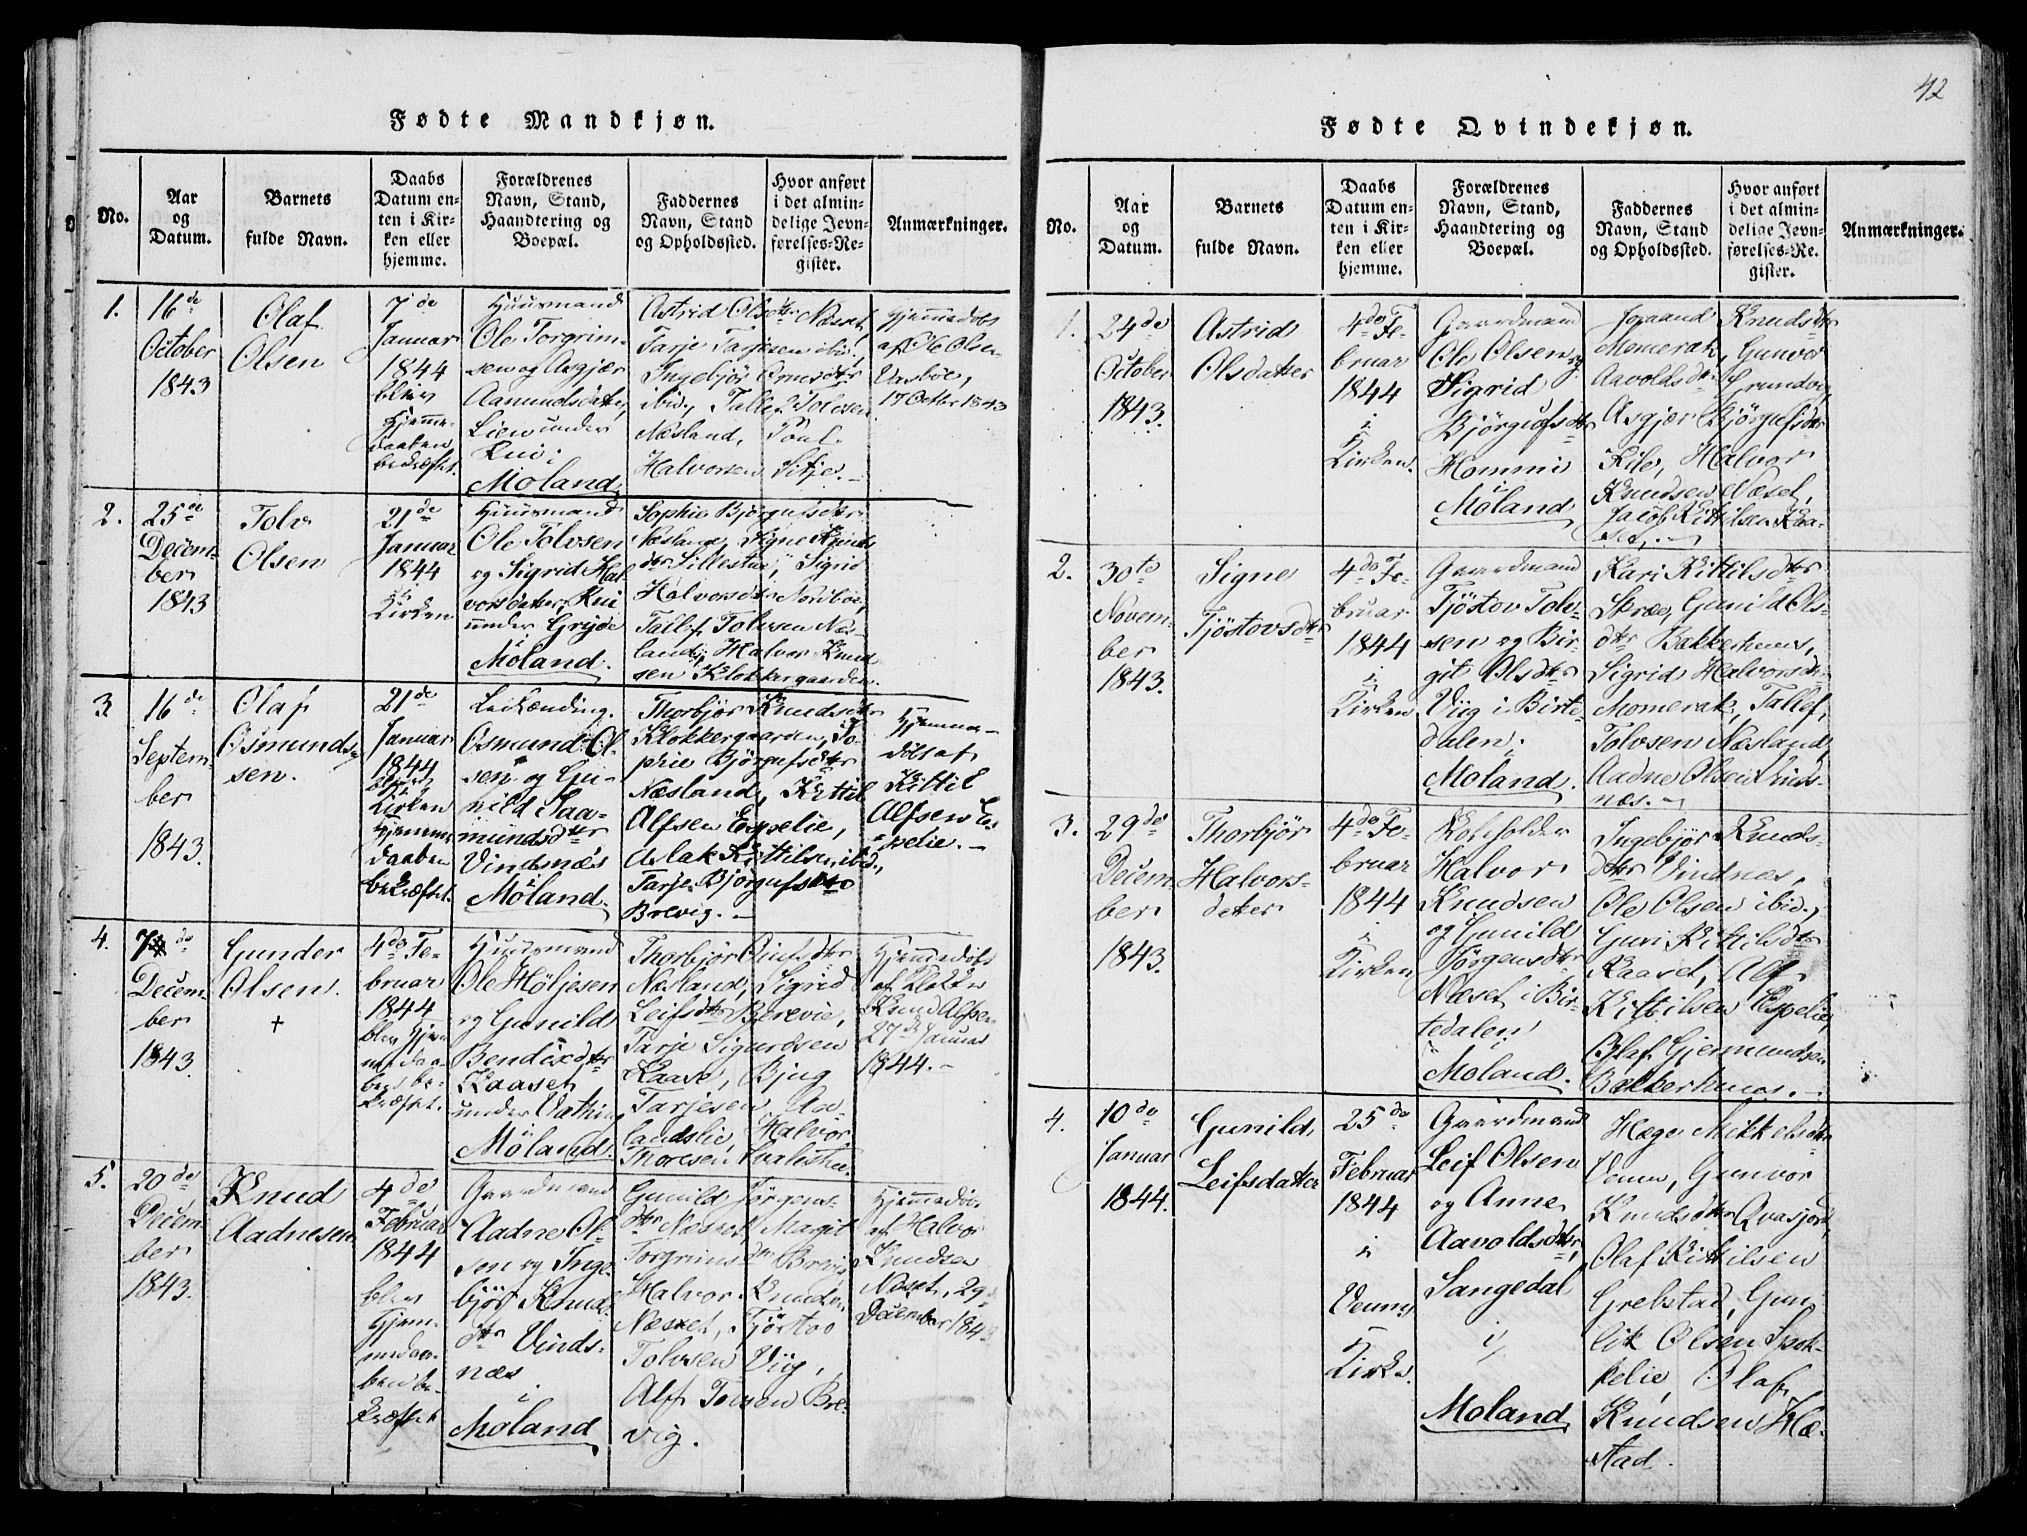 42
Fødte Mandkjøn.
No.
Aar
og
Datum.
Barnets
fulde Navn.
Daabs
Datum en-
ten i Kir-
ken eller
hjemme.
Forældrenes
Navn, Stand,
Haandtering og
Boepæl.
Faddernes
Navn, Stand
og Opholdssted.
Hvor anført
i det almin-
delige Jevn-
førelses-Re-
gister.
Anmærkninger.
1.
16de
October
1843
Olaf
Olsen
7de
Januar
1844
blev
Hjemme-
daaben
bekræftet.
Huusmand
Ole Torgrim-
sen og Asgjær
Aamundsdatter
Lien under
i
Moland.
Astrid Olsdtr Næset,
Tarje Tarjesen ibid.
Ingebjør
ibid., Tallef Tolvsen
Næsland,
Halvorsen
Hjemmedøbt
af Ole Olsen
17 Octbr 1843
2.
25de
Decem-
ber
1843
Tolv
Olsen
21de
Januar
1844
i
Kirken
Huusmand
Ole Tolvsen
og Sigrid Hal-
vorsdatter,
under
i
Moland.
Sophie Bjørgufsdtr
Næsland, Signe Knuds
dtr Sigrid
Halvorsdtr
Tallef Tolvsen Næs-
land, Halvor Knud
sen Klokkergaarden.
3
16de
Septem-
ber
1843.
Olaf
Osmund-
sen.
21de
Januar
1844
blev i
Kirken
Hjemme
daaben
bekræftet.
Osmund Ol-
sen og Gu-
nild Saa-
mundsdtr
Vindsnæs
i
Moland.
Thorbjør Knudsdtr
Klokkergaarden, So-
phie Bjørgufsdtr
Næsland, Kittil
Alfsen Espelie,
Aslak Kittilsen ibid.,
Tarje Bjørgufsen
Brevig. -
Hjemme-
døbt af
Kittil
Alfsen Es-
pelie. -
4.
7de
Decem-
ber
1843
Gunder
Olsen.
+
4de Fe-
bruar
1844
blev Hjem
medaa
ben be-
kræftet.
Huusmand
Ole Høljesen
og Gunild
Bendixdtr
Kaaset
under
i
Moland.
Thorbjør
Næsland, Sigrid
Leifsdtr
Tarje Sigurdsen
Kaase, Bjug
Tarjesen Aa-
landslie, Halvor
Thoresen
Hjemmedøbt
af
Knud Alfsen
27de Januar
1844. -
5.
20de
Decem-
ber
1843.
Knud
Aadnesen
4de
Februar
1844
blev
Hjem-
medaa-
ben be-
kræftet
Gaardmand
Aadne Ol-
sen og Inge-
bjør Knuds-
dtr Vinds-
næs
i
Moland
Gunild Jørgens-
dtr Næset, Margit
Torgrimsdtr Brevig
Halvor Knudsen
Næset, Tjøstov
Tolvsen Viig,
Alf Bre-
vig.
Hjemmedøbt
af Halvor
Knudsen
Næset, 29de
December 1843
Fødte Qvindekjøn.
No.
Aar
og
Datum.
Barnets
fulde Navn.
Daabs
Datum en-
ten i Kir-
ken eller
hjemme.
Forældrenes
Navn, Stand,
Haandtering og
Boepæl.
Faddernes
Navn, Stand
og Opholdssted.
Hvor anført
i det almin-
delige Jevn-
førelses-Re-
gister.
Anmærkninger.
1.
24de
October
1843.
Astrid
Olsdatter
4de Fe-
bruar
1844
i
Kirken.
Gaardmand
Ole Olsen og
Sigrid
Bjørgufsdtr
Hommo
i
Moland
Joraand Knudsdtr
Momerak, Gunvor
Aavoldsdtr
Asgjær Bjørgufsdtr
Kile, Halvor
Knudsen Næset,
Jacob Kittilsen Kaa-
set. -
2.
30te
Novem-
ber
1843.
Signe
Tjøstovsdtr
4de Fe-
bruar
1844
i
Kirken
Gaardmand
Tjøstov Tolv-
sen og Bir-
git Olsdtr
Viig i Birte-
dalen i
Moland.
Kari Kittilsdtr
Skræe, Gunild Ols-
dtr Bakkerhuus,
Sigrid Halvorsdtr
Momerak, Tallef
Tolvsen Næsland
Aadne Olsen Vinds-
næs. -
3.
29de
Decem-
ber
1843.
Thorbjør
Halvors-
datter
4de Fe-
bruar
1844
i
Kirken
Halvor
Knudsen
og Gunild
Jørgensdtr
Næset i Bir-
tedalen
i
Moland.
Ingebjør Knuds-
dtr Vindnæs,
Ole Olsen ibid.,
Guri Kittilsdtr
Kaase, Alf
Kittilsen Espelie,
Olaf Gjermundsen
Bakkerhuus. -
4.
10de
Januar
1844.
Gunild
Leifsdatter
25de
Februar
1844
i
Veums
Kirke.
Gaardmand
Leif Olsen
og Anne
Aavoldsdtr,
Sangedal
i
Moland
Hæge Mikkelsdtr
Veum, Gunvor
Knudsdtr Qvasjord,
Olaf Kittilsen
Grebstad, Gun-
lik Olsen Spok-
kelie, Olaf
Knudsen Hæ-
stad.